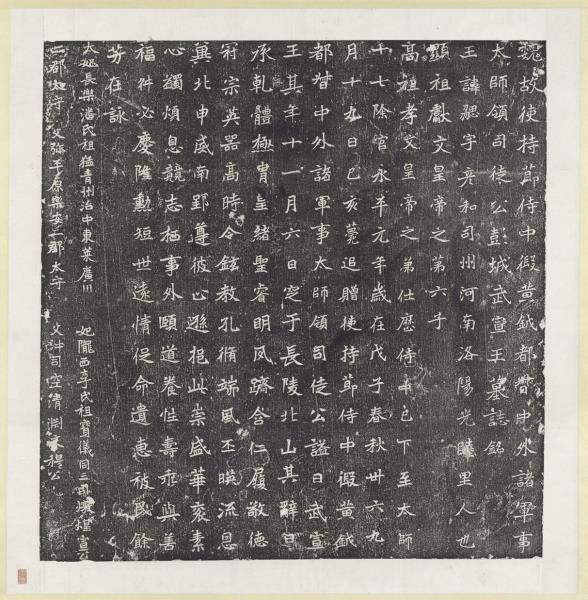 魏故使持節侍中假黃鉞都督中外諸軍事
太師領司徒公彭城武宣王墓誌銘
王諱勰字彥和司州河南洛陽光睦里人也
顯祖獻文皇帝之第六子
高祖孝文皇帝之弟仕歷侍中已下至太師
十七除官永平元年歲在戊子春秋卅六九
月十九日己亥薨追贈使持節侍中假黃鉞
都督中外諸軍事太師領司徒公謚曰武宣
王其年十一月六日窆于長陵北山其辭曰
承乾體極胄皇緒聖睿明夙躋含仁履敬德
冠宗英器高時令鉉教孔脩端風丕映流恩
冀北申威南郢遵彼止遜挹此崇盛華衮素
心蠲煩息競志栖事外頤道養性壽乖與善
福舛必慶隆勳短世遠情促命遺惠被民餘
芳在詠
太妃長樂潘氏祖猛青州治中東萊廣川
二郡太守 父弥平原樂安二郡太守
妃隴西李氏祖寶儀同三司燉煌宣公
父沖司空清淵文穆公